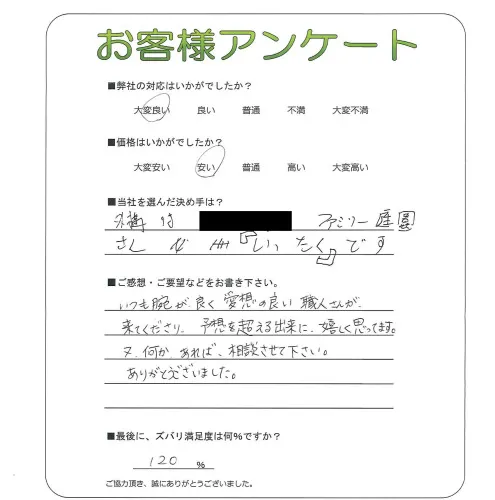 お客様アンケート
■弊社の対応はいかがでしたか？
大変良い 良い 普通 不満 大変不満
■価格はいかがでしたか？
大変安い 安い 普通 高い 大変高い
■当社を選んだ決め手は？
外構は ファミリー庭園
さんが いったくです
■ご感想・ご要望などをお書き下さい。
いつも腕が良く愛想の良い職人さんが、
来てくださり、予想を超える出来に、嬉しく思ってます。
又、何か、あれば、相談させて下さい。
ありがとうございました。
■最後に、ズバリ満足度は何%ですか？
120 %
ご協力頂き、誠にありがとうございました。